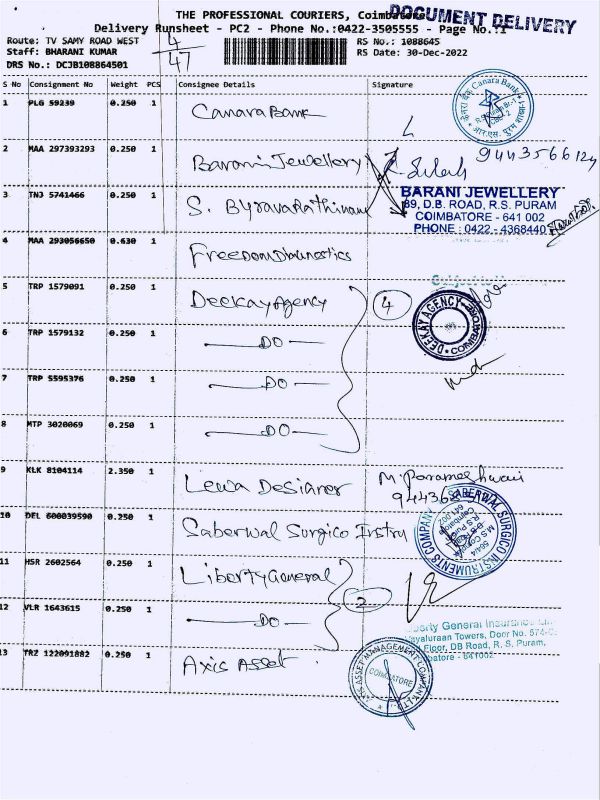 THE PROFESSIONAL COURIERS, Coimbatore
DOCUMENT DELIVERY
Delivery Runsheet - PC2 - Phone No.:0422-3505555 - Page No.:1
Route: TV SAMY ROAD WEST
Staff: BHARANI KUMAR
DRS No.: DCJB108864501
4
47
RS No.: 1088645
RS Date: 30-Dec-2022
S No Consignment No Weight PCS Consignee Details Signature
1 PLG 59239 0.250 1 Canara Bank
Canara Bank
2 MAA 297393293 0.250 1 Barani Jewellery
9443566124
3 TNJ 5741466 0.250 1 S. Byravarathinam
BARANI JEWELLERY
89, D.B. ROAD, R.S. PURAM
COIMBATORE - 641 002
PHONE : 0422 - 4368440
4 MAA 293056650 0.630 1 Freedom Diagnostics
5 TRP 1579091 0.250 1 Deekay Agency
4
DEEKAY AGENCY
COIMBATORE
6 TRP 1579132 0.250 1 DO
7 TRP 5595376 0.250 1 DO
8 MTP 3020069 0.250 1 DO
9 KLK 8104114 2.350 1 Lewa Desianer
M. Parameshwari
10 DEL 600039590 0.250 1 Saberwal Surgico Instru
SABERWAL SURGICO INSTRUMENTS COMPANY
11 HSR 2602564 0.250 1 Liberty General
2
12 VLR 1643615 0.250 1 DO
Liberty General Insurance
Towers, Door No. 574-
Floor, DB Road, R. S. Puram,
Coimbatore - 641002
13 TRZ 122091882 0.250 1 Axis Asset
AXIS ASSET MANAGEMENT COMPANY LTD.
COIMBATORE